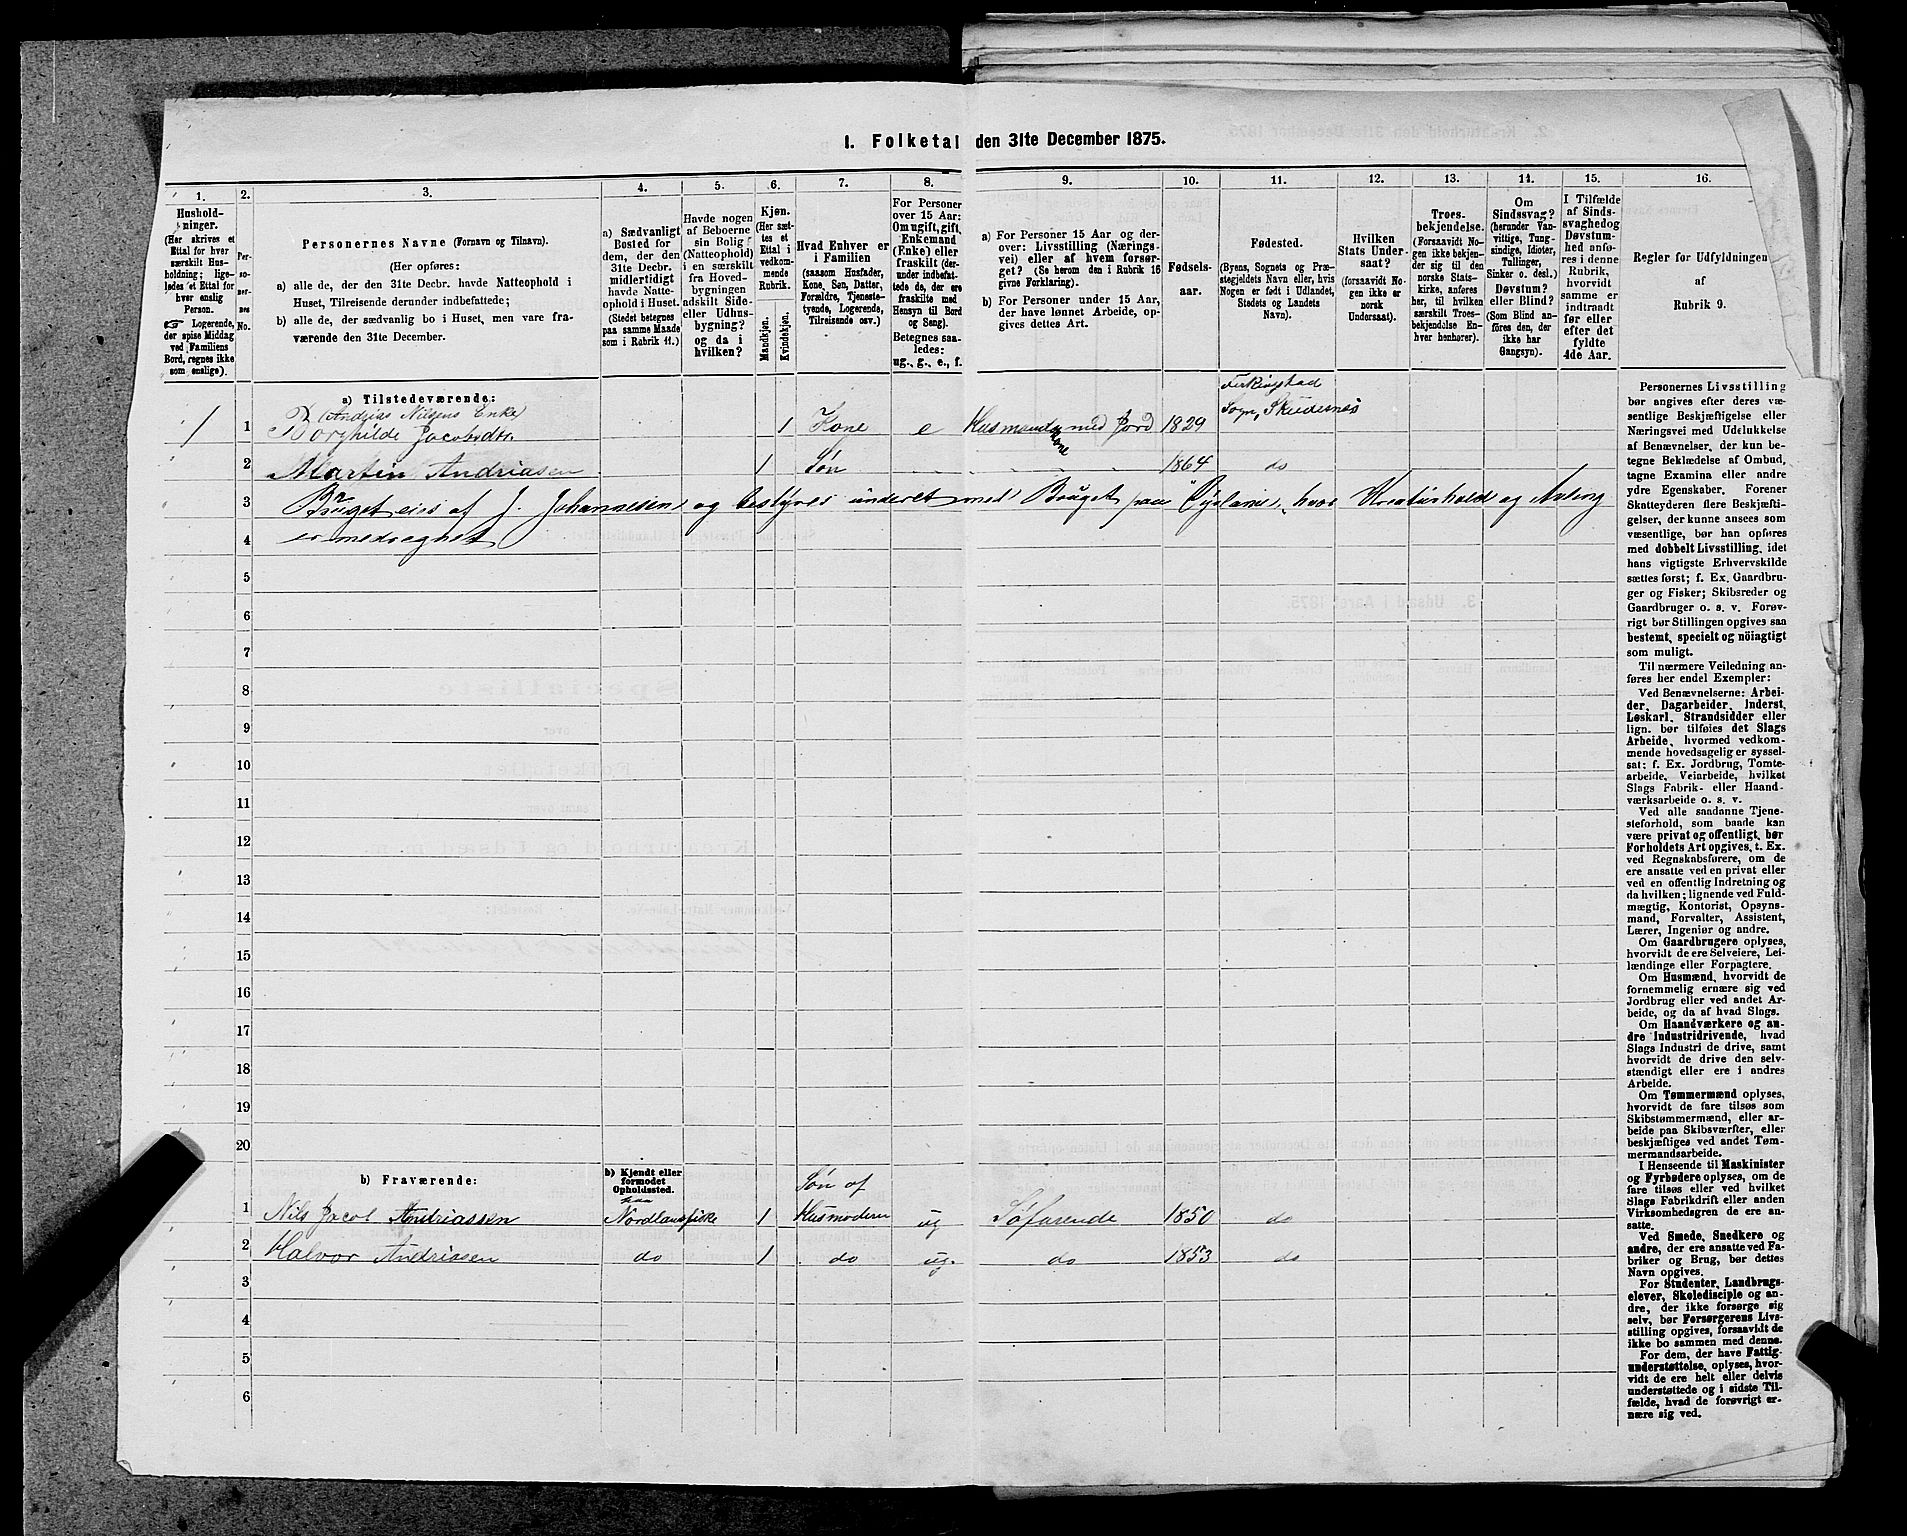 1. Folketal den 31te December 1875.
1.
2.
3.
4.
5.
6.
7.
8.
9.
10.
11.
12.
13.
14.
15.
16.
Hushold-
ninger.
(Her skrives et
Ettal for hver
særskilt Hus-
holdning; lige-
ledes et Ettal for
hver enslig
Person.
☞ Logerende,
der spise Middag
ved Familiens
Bord, regnes ikke
som enslige).
Per-
so-
ner-
nes
No.
Personernes Navne (Fornavn og Tilnavn).
(Her opføres:
a) alle de, der den 31te Decbr. havde Natteophold i
Huset, Tilreisende derunder indbefattede;
b) alle de, der sædvanlig bo i Huset, men vare fra-
værende den 31te December.
a) Sædvanligt
Bosted for
dem, der den
31te Decbr.
midlertidigt
havde Natte-
ophold i Huset.
(Stedet betegnes
paa samme Maade
som i Rubrik 11.)
Havde nogen
af Beboerne
sin Bolig
(Natteophold)
i en særskilt
fra Hoved-
bygningen
adskilt Side-
eller Udhus-
bygning?
og da i
hvilken?
Kjøn.
(Her sæt-
tes et
Ettal i
vedkom-
mende
Rubrik.
Mandkjøn.
Kvindekjøn.
Hvad Enhver er
i Familien
(saasom Husfader,
Kone, Søn, Datter,
Forældre, Tjeneste-
tyende, Logerende,
Tilreisende osv.)
For Personer
over 15 Aar:
Om ugift, gift,
Enkemand
(Enke) eller
fraskilt (der-
under indbefat-
tede de, der ere
fraskilte med
Hensyn til Bord
og Seng).
Betegnes saa-
ledes:
ug., g., e., f.
a) For Personer 15 Aar og der-
over: Livsstilling (Nærings-
vei) eller af hvem forsør-
get? (Se herom den i Rubrik 16
givne Forklaring).
b) For Personer under 15 Aar,
der have lønnet Arbeide, op-
gives dettes Art.
Fødsels-
aar.
Fødested.
(Byens, Sognets og Præ-
stegjeldets Navn eller, hvis
Nogen er født i Udlandet,
Stedets og Landets
Navn).
Hvilken
Stats Under-
saat?
(forsaavidt No-
gen ikke er
norsk
Undersaat).
Troes-
bekjendelse.
(Forsaavidt No-
gen ikke bekjen-
der sig til den
norske Stats-
kirke, anføres
her, til hvilken
særskilt Troes-
bekjendelse En-
hver henhører).
Om
Sindssvag?
(herunder Van-
vittige, Tung-
sindige, Idioter,
Tullinger,
Sinker o. desl.)
Døvstum?
eller Blind?
(Som Blind an-
føres den, der
ikke har
Gangsyn).
I Tilfælde
af Sinds-
svaghed og
Døvstum-
hed anfø-
res i denne
Rubrik,
hvorvidt
samme er
indtraadt
før eller
efter det
fyldte
4de Aar.
Regler for Udfyldningen
af
Rubrik 9.
a) Tilstedeværende:
(Andrias Nilsens Enke)
1 1 Borghilde Jacobsdtr. 1 Kone e Husmands kone med Jord 1829 Ferkingstad
Sogn, Skudesnes
2 Martin Andriasen 1 Søn 1864 do
3 Bruget eies af J. Johannesen og bestyres underet med Bruget paa hvor Kreaturhold og Avling
4 er medregnet
5
6
7
8
9
10
11
12
13
14
15
16
17
18
19
20
b) Fraværende:
b) Kjendt eller
formodet
Opholdssted.
1 Nils Jacob Andriassen paa Nordlandsfiske 1 Søn af
Husmoderen ug Søfarende 1850 do
2 Halvor Andriasen do 1 do ug. do 1853 do
3
4
5
6
Personernes Livsstilling
bør angives efter deres væ-
sentlige Beskjæftigelse eller
Næringsvei med Udelukkelse
af Benævnelser, der kun be-
tegne Beklædelse af Ombud,
tagne Examina eller andre
ydre Egenskaber. Forener
Skatteyderen flere Beskjæfti-
gelser, der kunne ansees som
væsentlige, bør han opføres
med dobbelt Livsstilling, idet
hans vigtigste Erhvervskilde
sættes først; f. Ex. Gaardbru-
ger og Fisker; Skibsreder og
Gaardbruger o. s. v. Forøv-
rigt bør Stillingen opgives saa
bestemt, specielt og nöiagtigt
som muligt.
Til nærmere Veiledning an-
føres her endel Exempler:
Ved Benævnelserne: Arbei-
der, Dagarbeider, Inderst,
Løskarl, Strandsidder eller
lign. bør tilføies det Slags
Arbeide, hvormed vedkom-
mende hovedsagelig er syssel-
sat: f. Ex. Jordbrug, Tomte-
arbeide, Veiarbeide, hvilket
Slags Fabrik- eller Haand-
værksarbeide o. s. v.
Ved alle saadanne Tjene-
steforhold, som baade kan
være privat og offentligt, bør
Forholdets Art opgives, t. Ex.
ved Regnskabsførere, om de
ere ansatte ved en privat eller
ved en offentlig Indretning og
da hvilken; lignende ved Fuld-
mægtig, Kontorist, Opsyns-
mand, Forvalter, Assistent,
Lærer, Ingeniør og andre.
Om Gaardbrugere oplyses,
hvorvidt de ere Selveiere, Lei-
lændinge eller Forpagtere.
Om Husmænd, hvorvidt de
fornemmelig ernære sig ved
Jordbrug eller ved andet Ar-
beide, og da af hvad Slags.
Om Haandværkere og an-
dre Industridrivende, hvad
Slags Industri de drive, samt
hvorvidt de drive den selv-
stændigt eller ere i andres
Arbeide.
Om Tømmermænd oplyses,
hvorvidt de fare tilsøs som
Skibstømmermænd, eller ar-
beide paa Skibsværfter, eller
beskjæftiges ved andet Tøm-
mermandsarbeide.
I Henseende til Maskinister
og Fyrbødere oplyses, om de
fare tilsøs eller ved hvilket
Slags Fabrikdrift eller anden
Virksomhedsgren de ere an-
satte.
Ved Smede, Snedkere og
andre, der ere ansatte ved Fa-
briker og Brug, bør dettes
Navn opgives.
For Studenter, Landbrugs-
elever, Skoledisciple og an-
dre, der ikke forsørge sig
selv, bør Forsørgerens Livs-
stilling opgives, forsaavidt de
ikke bo sammen med denne.
For dem, der have Fattig-
understøttelse, oplyses, hvor-
vidt de ere helt eller delvis
understøttede og i sidste Til-
fælde, hvad de forøvrigt er-
nære sig ved.